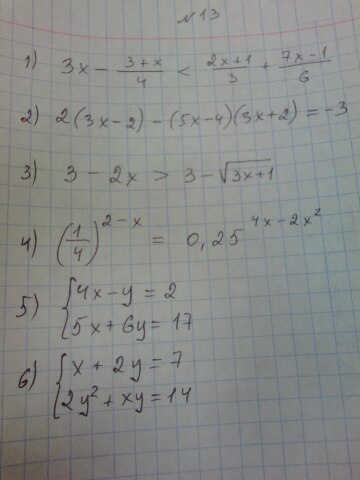 №13
1) 3x - (3+x)/4 < (2x+1)/3 + (7x-1)/6
2) 2(3x-2) - (5x-4)(3x+2) = -3
3) 3 - 2x > 3 - √(3x+1)
4) (1/4)^(2-x) = 0,25^(4x-2x²)
5) { 4x - y = 2
5x + 6y = 17
6) { x + 2y = 7
2y² + xy = 14